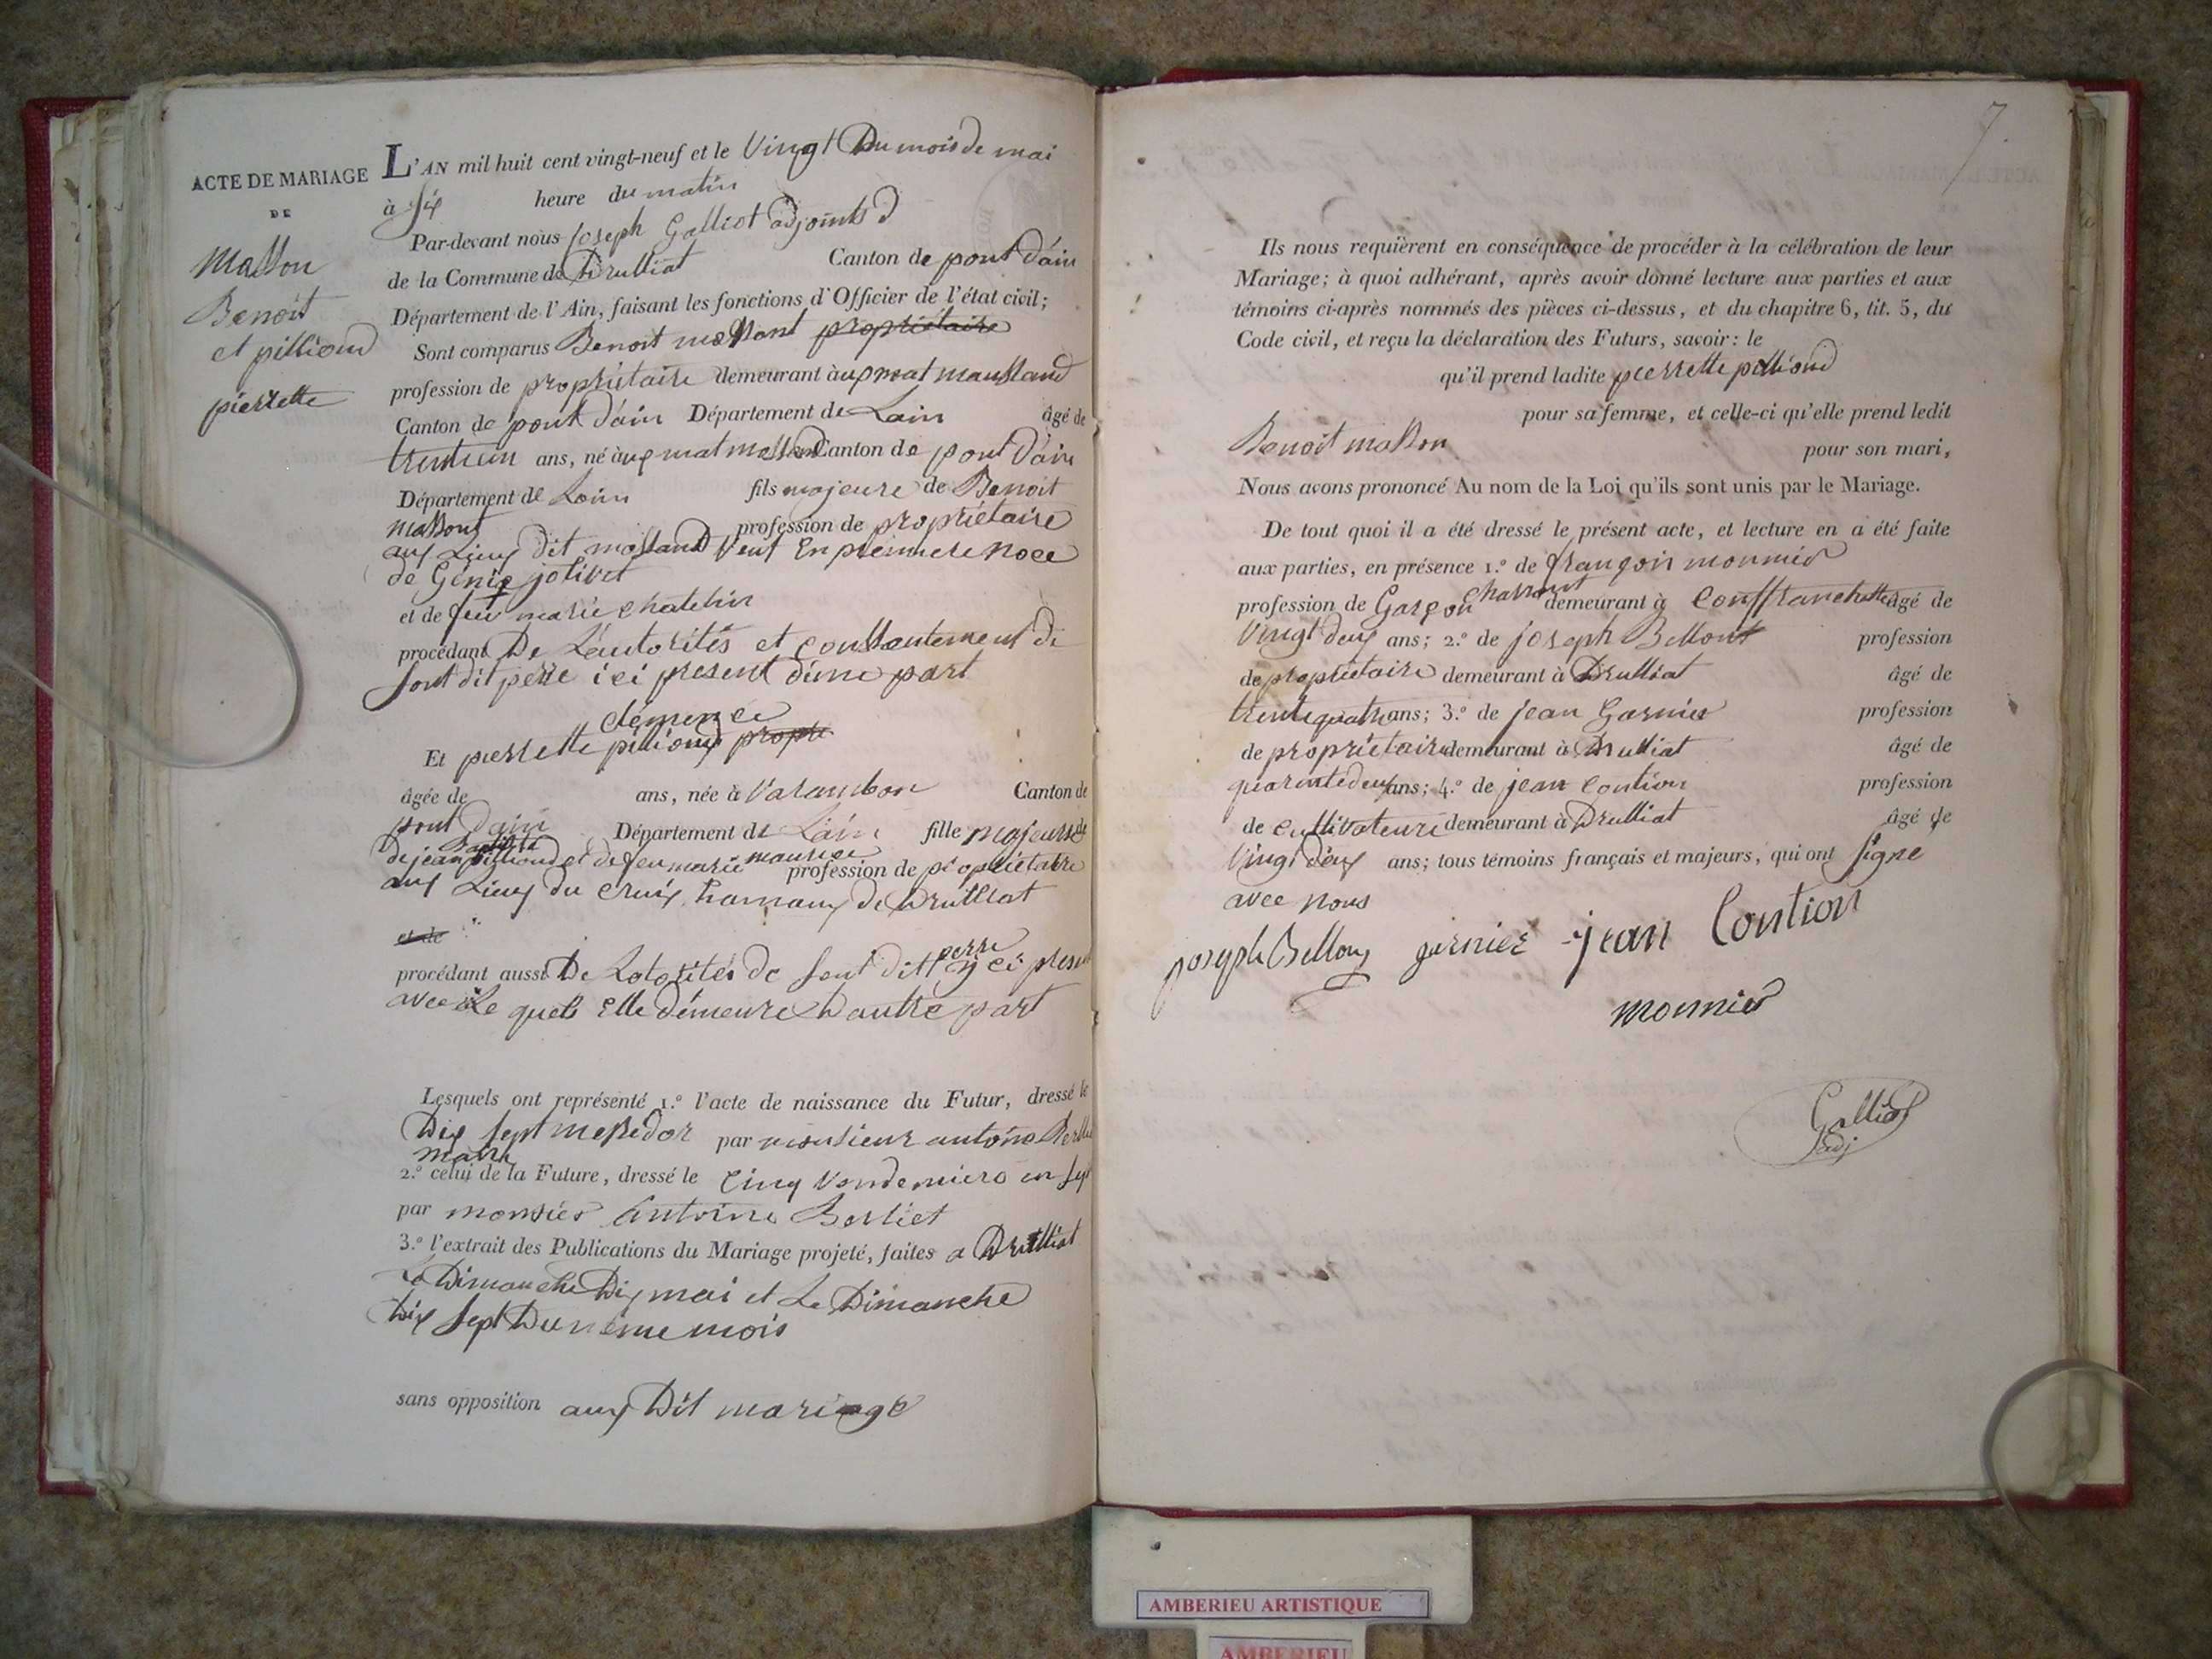 ACTE DE MARIAGE
DE
Masson
Benoit
et pilliond
pierrette
L'AN mil huit cent vingt-neuf et le Vingt Du mois de mai
à Six heure du matin
Par-devant nous Joseph Galliot adjoints d
de la Commune de Drulliat Canton de pont d'ain
Département de l'Ain, faisant les fonctions d'Officier de l'état civil;
Sont comparus Benoit massont propriétaire
profession de propriétaire demeurant à
Canton de pont d'ain Département de Lain âgé de
ans, né à Canton de pont d'ain
Département de Lain fils majeure de Benoit
massont profession de propriétaire
aux Lieux dit massand Veuf En premiere noce
de Génie jolivet
et de feu marie chatelin
procédant De L'autorités et conssentement de
sont dit perre ici present d'une part
clémence
Et pierrette pilliond propre
âgée de ans, née à Varambon Canton de
pont dain Département de Lain fille majeure de
De jean Baptiste pilliond et de feu marie maurice profession de propriétaire
aux Lieux du Cruix hamaux de Drulliat
et de
procédant aussi De Lotorités de sont ditt perre y ci present
avec Le quels Elle démeure D'autre part
Lesquels ont représenté 1.º l'acte de naissance du Futur, dressé le
Dix sept messidor par monsieur antoine
maire
2.º celui de la Future, dressé le Cinq Vendemiere en sept
par monsier Antoine Berliet
3.º l'extrait des Publications du Mariage projeté, faites a Drulliat
Le Dimanche Dix mai et Le Dimanche
Dix sept Du même mois
sans opposition aux Dit mariage
7
Ils nous requièrent en conséquence de procéder à la célébration de leur
Mariage; à quoi adhérant, après avoir donné lecture aux parties et aux
témoins ci-après nommés des pièces ci-dessus, et du chapitre 6, tit. 5, du
Code civil, et reçu la déclaration des Futurs, savoir: le
qu'il prend ladite pierrette pilliond
pour sa femme, et celle-ci qu'elle prend ledit
Benoit masson pour son mari,
Nous avons prononcé Au nom de la Loi qu'ils sont unis par le Mariage.
De tout quoi il a été dressé le présent acte, et lecture en a été faite
aux parties, en présence 1.º de françois monnier
profession de Garçon charront demeurant à âgé de
Vingt deux ans; 2.º de joseph Bellont profession
de propriétaire demeurant à Drulliat âgé de
trente quatre ans; 3.º de jean Garnier profession
de propriétaire demeurant à Drulliat âgé de
quarante deux ans; 4.º de jean Contion profession
de cultivateure demeurant à Drulliat âgé de
Vingt deux ans; tous témoins français et majeurs, qui ont signe
avec nous
joseph Bellon garnier jean Contion
monnier
Galliot
adj
AMBERIEU ARTISTIQUE
AMBERIEU